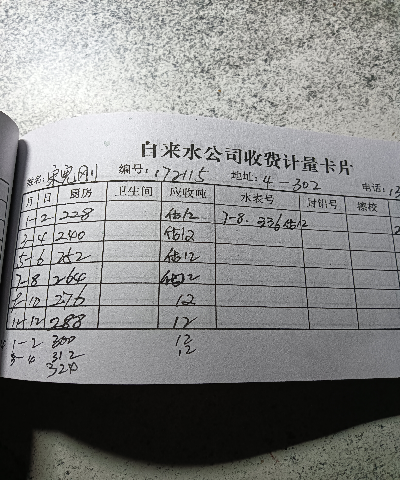 自来水公司收费计量卡片
姓名: 宋宪刚 编号: 172115 地址: 4-302 电话: 13
月 日 厨房 卫生间 应收吨 水表号 封铅号 换校
1-2 228 估12 7-8. 336估12
3-4 240 估12
5-6 252 估12
7-8 264 估12
9-10 276 12
11-12 288 12
1-2 300 12
3-4 312 12
324